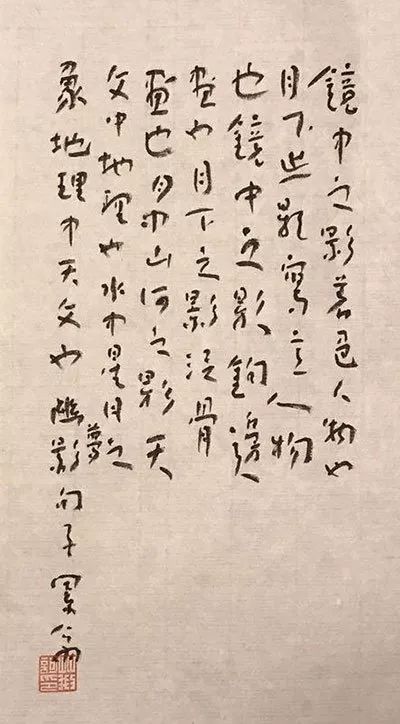 鏡中之影著色人物也
月下之影寫意人物
也鏡中之影鉤邊
畫也月下之影沒骨
畫也月中山河之影天
文中地理也水中星月之
象地理中天文也幽夢影句子翁